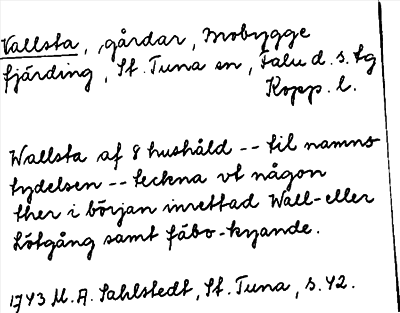 Vallsta, gårdar, Mobygge
fjärding, St. Tuna sn, Falu d.s. tg
Kopp. l.
Wallsta af 8 hushåld -- til namns
tydelsen -- teckna vt någon
ther i början inrettad Wall- eller
Lötgång samt fäbo-kyande.
1743 M. A. Sahlstedt, St. Tuna, s. 42.